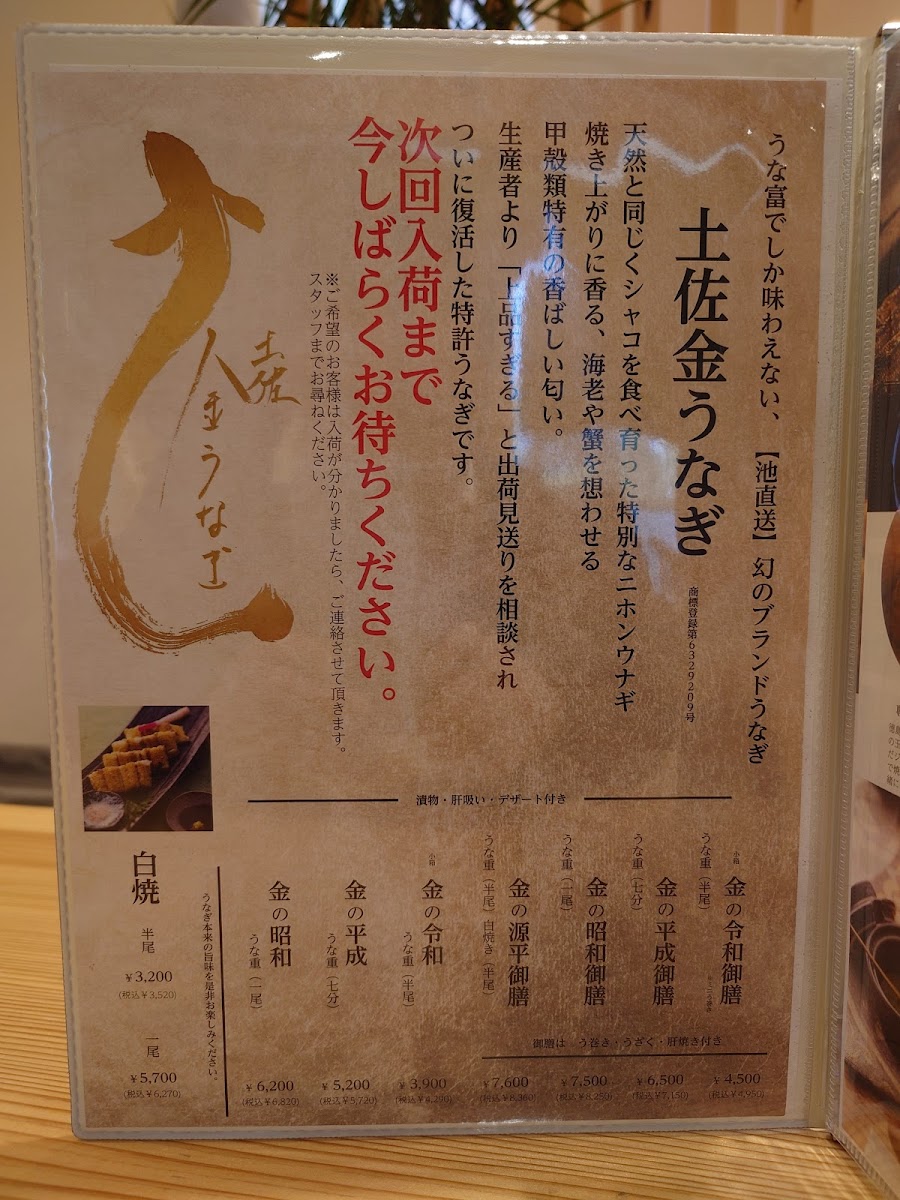 うな富でしか味わえない、【池直送】幻のブランドうなぎ
土佐金うなぎ
商標登録第6329209号
天然と同じくシャコを食べ育った特別なニホンウナギ
焼き上がりに香る、海老や蟹を想わせる
甲殻類特有の香ばしい匂い。
生産者より「上品すぎる」と出荷見送りを相談され
ついに復活した特許うなぎです。
次回入荷まで
今しばらくお待ちください。
※ご希望のお客様は入荷が分かりましたら、ご連絡させて頂きます。
スタッフまでお尋ねください。
土佐
金うなぎ
漬物・肝吸い・デザート付き
小箱
金の令和御膳
うな重(半尾)
¥4,500
(税込¥4,950)
金の平成御膳
うな重(七分)
¥6,500
(税込¥7,150)
金の昭和御膳
うな重(一尾)
¥7,500
(税込¥8,250)
金の源平御膳
うな重(半尾)白焼き(半尾)
¥7,600
(税込¥8,360)
御膳は う巻き・うざく・肝焼き付き
小箱
金の令和
うな重(半尾)
¥3,900
(税込¥4,290)
金の平成
うな重(七分)
¥5,200
(税込¥5,720)
金の昭和
うな重(一尾)
¥6,200
(税込¥6,820)
うなぎ本来の旨味を是非お楽しみください。
白焼
半尾
¥3,200
(税込¥3,520)
一尾
¥5,700
(税込¥6,270)